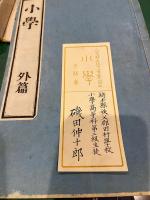 小學
外篇
小學
埼玉縣秩父郡田村學校
小學高等科第二級生徒
磯田伸十郎